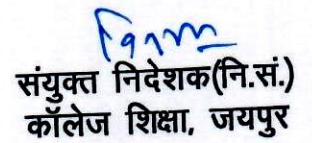 संयुक्त निदेशक(नि.सं.)
कॉलेज शिक्षा, जयपुर